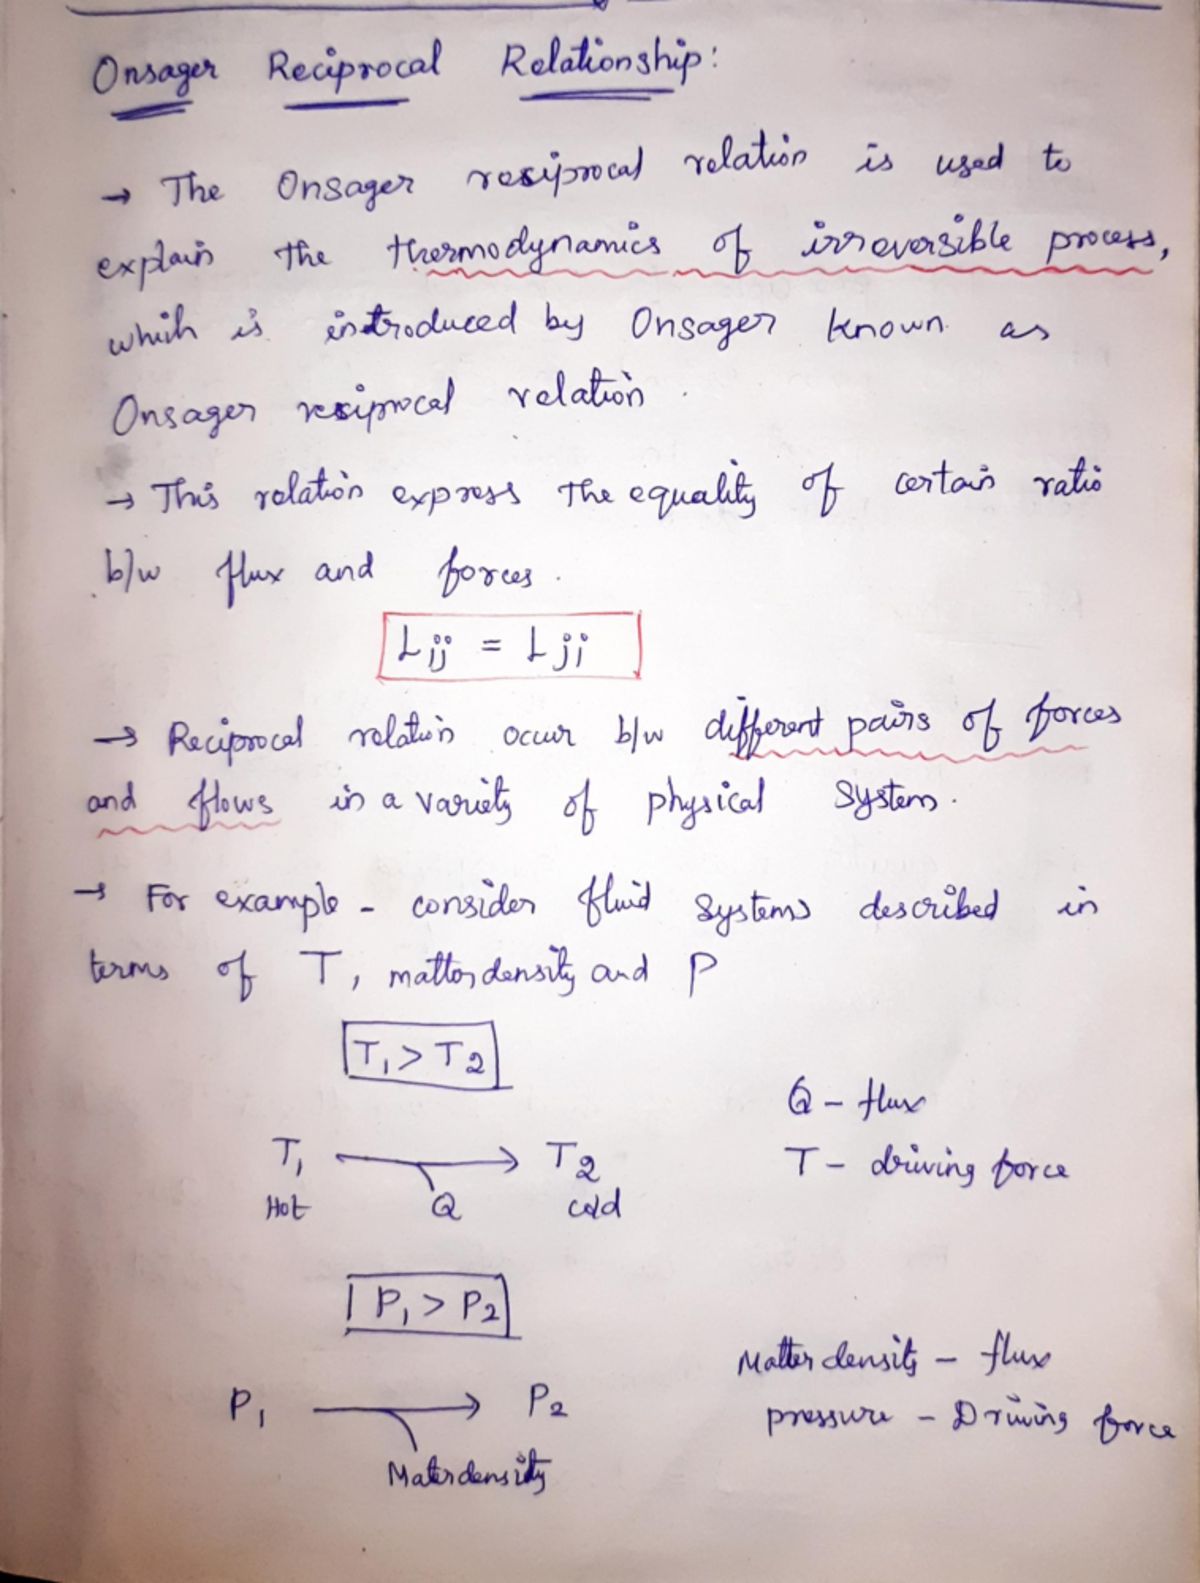 Onsager Reciprocal Relationship:
→ The Onsager resiprocal relation is used to
explain the thermodynamics of irreversible process,
which is introduced by Onsager known as
Onsager resiprocal relation.
→ This relation express the equality of certain ratio
b/w flux and forces.
Lij = Lji
→ Reciprocal relation occur b/w different pairs of forces
and flows in a variety of physical system.
→ For example - consider fluid systems described in
terms of T, matter density and P
T1 > T2
Q - flux
T1 → T2
T - driving force
Hot Q cold
P1 > P2
Matter density - flux
P1 → P2
pressure - Driving force
Materdensity